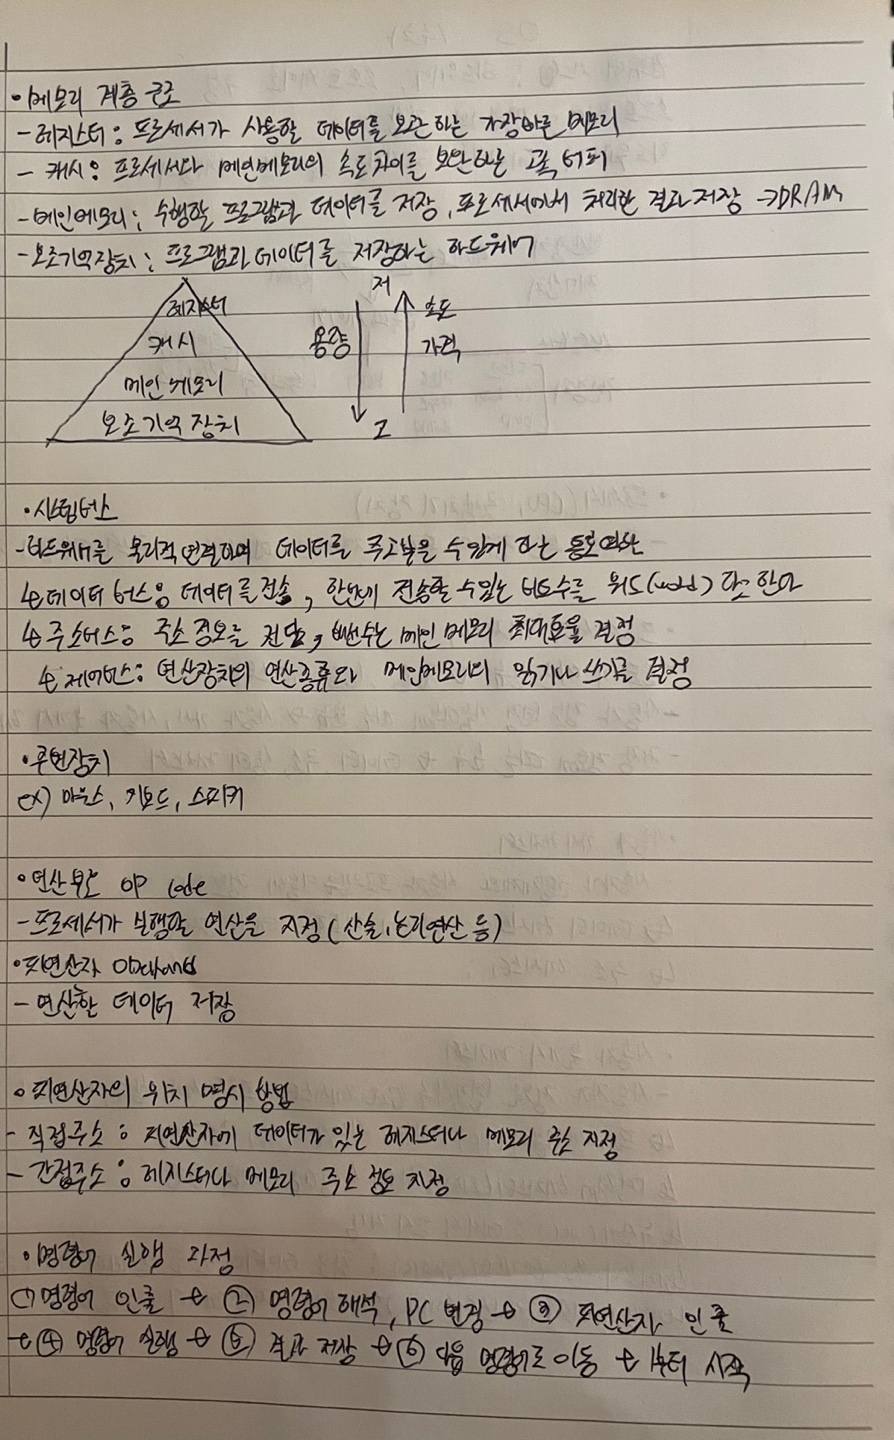 • 메모리 계층 구조
- 레지스터 : 프로세서가 사용할 데이터를 보관하는 가장 빠른 메모리
- 캐시 : 프로세서와 메인메모리의 속도 차이를 보완하는 고속 버퍼
- 메인메모리 : 수행할 프로그램과 데이터를 저장, 프로세서에서 처리한 결과 저장 → DRAM
- 보조기억장치 : 프로그램과 데이터를 저장하는 하드웨어
레지스터
캐시
메인 메모리
보조기억 장치
저
용량
고
속도
가격
• 시스템버스
- 하드웨어를 물리적 연결하여 데이터를 주고받을 수 있게 하는
↳ 데이터 버스 : 데이터를 전송, 한번에 전송할 수 있는 비트수를 워드(word)라 한다
↳ 주소버스 : 주소 정보를 전달, 메인 메모리 최대효율 결정
↳ 제어버스 : 연산장치의 연산종류와 메인메모리의 읽기나 쓰기를 결정
• 주변장치
ex) 마우스, 키보드, 스피커
• 연산부호 OP code
- 프로세서가 실행할 연산을 지정 (산술, 논리연산 등)
• 피연산자
- 연산할 데이터 저장
• 피연산자의 위치 명시 방법
- 직접주소 : 피연산자에 데이터가 있는 레지스터나 메모리 주소 지정
- 간접주소 : 레지스터나 메모리 주소 정보 지정
• 명령어 실행 과정
① 명령어 인출 → ② 명령어 해석, PC 변경 → ③ 피연산자 인출
→ ④ 명령어 실행 → ⑤ 결과 저장 → ⑥ 다음 명령어로 이동 → 1부터 시작